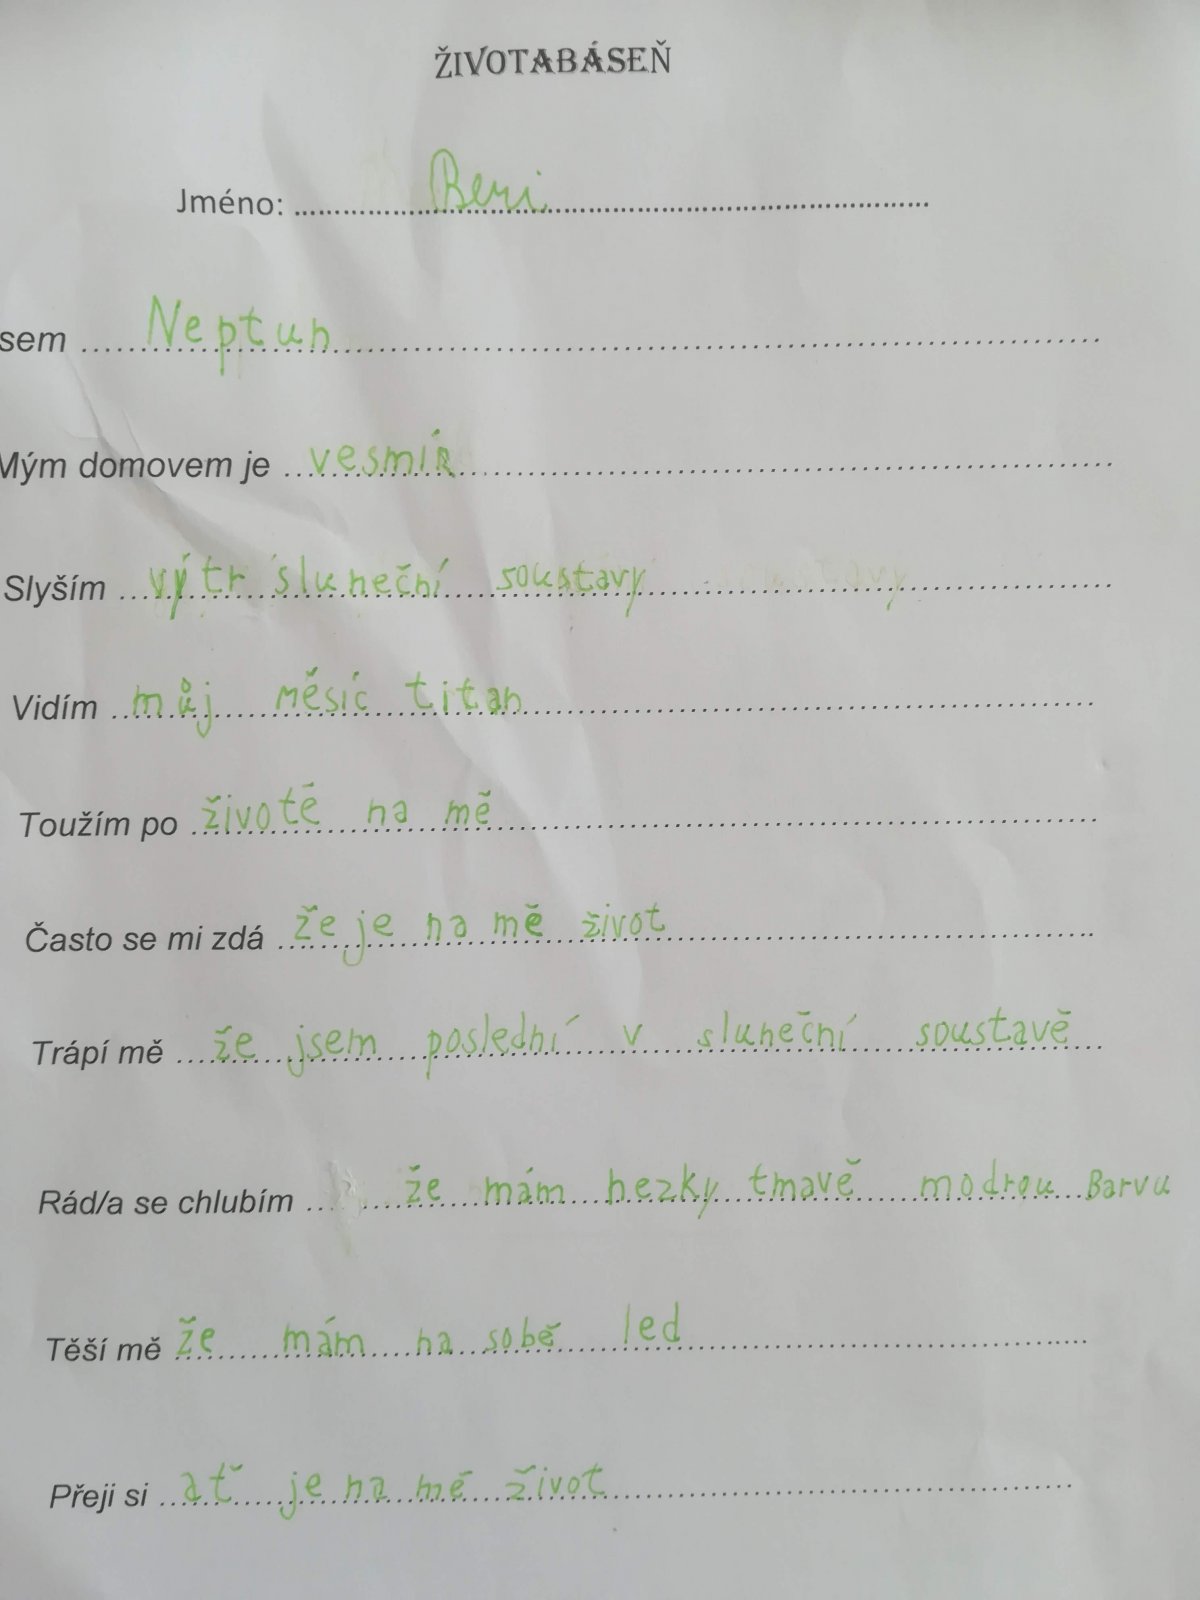 ŽIVOTABÁSEŇ
Jméno: Beri
sem Neptun
Mým domovem je vesmír
Slyším výtr sluneční soustavy
Vidím můj měsíc titan
Toužím po životě na mě
Často se mi zdá že je na mě život
Trápí mě že jsem poslední v sluneční soustavě
Rád/a se chlubím že mám hezky tmavě modrou Barvu
Těší mě že mám na sobě led
Přeji si ať je na mě život